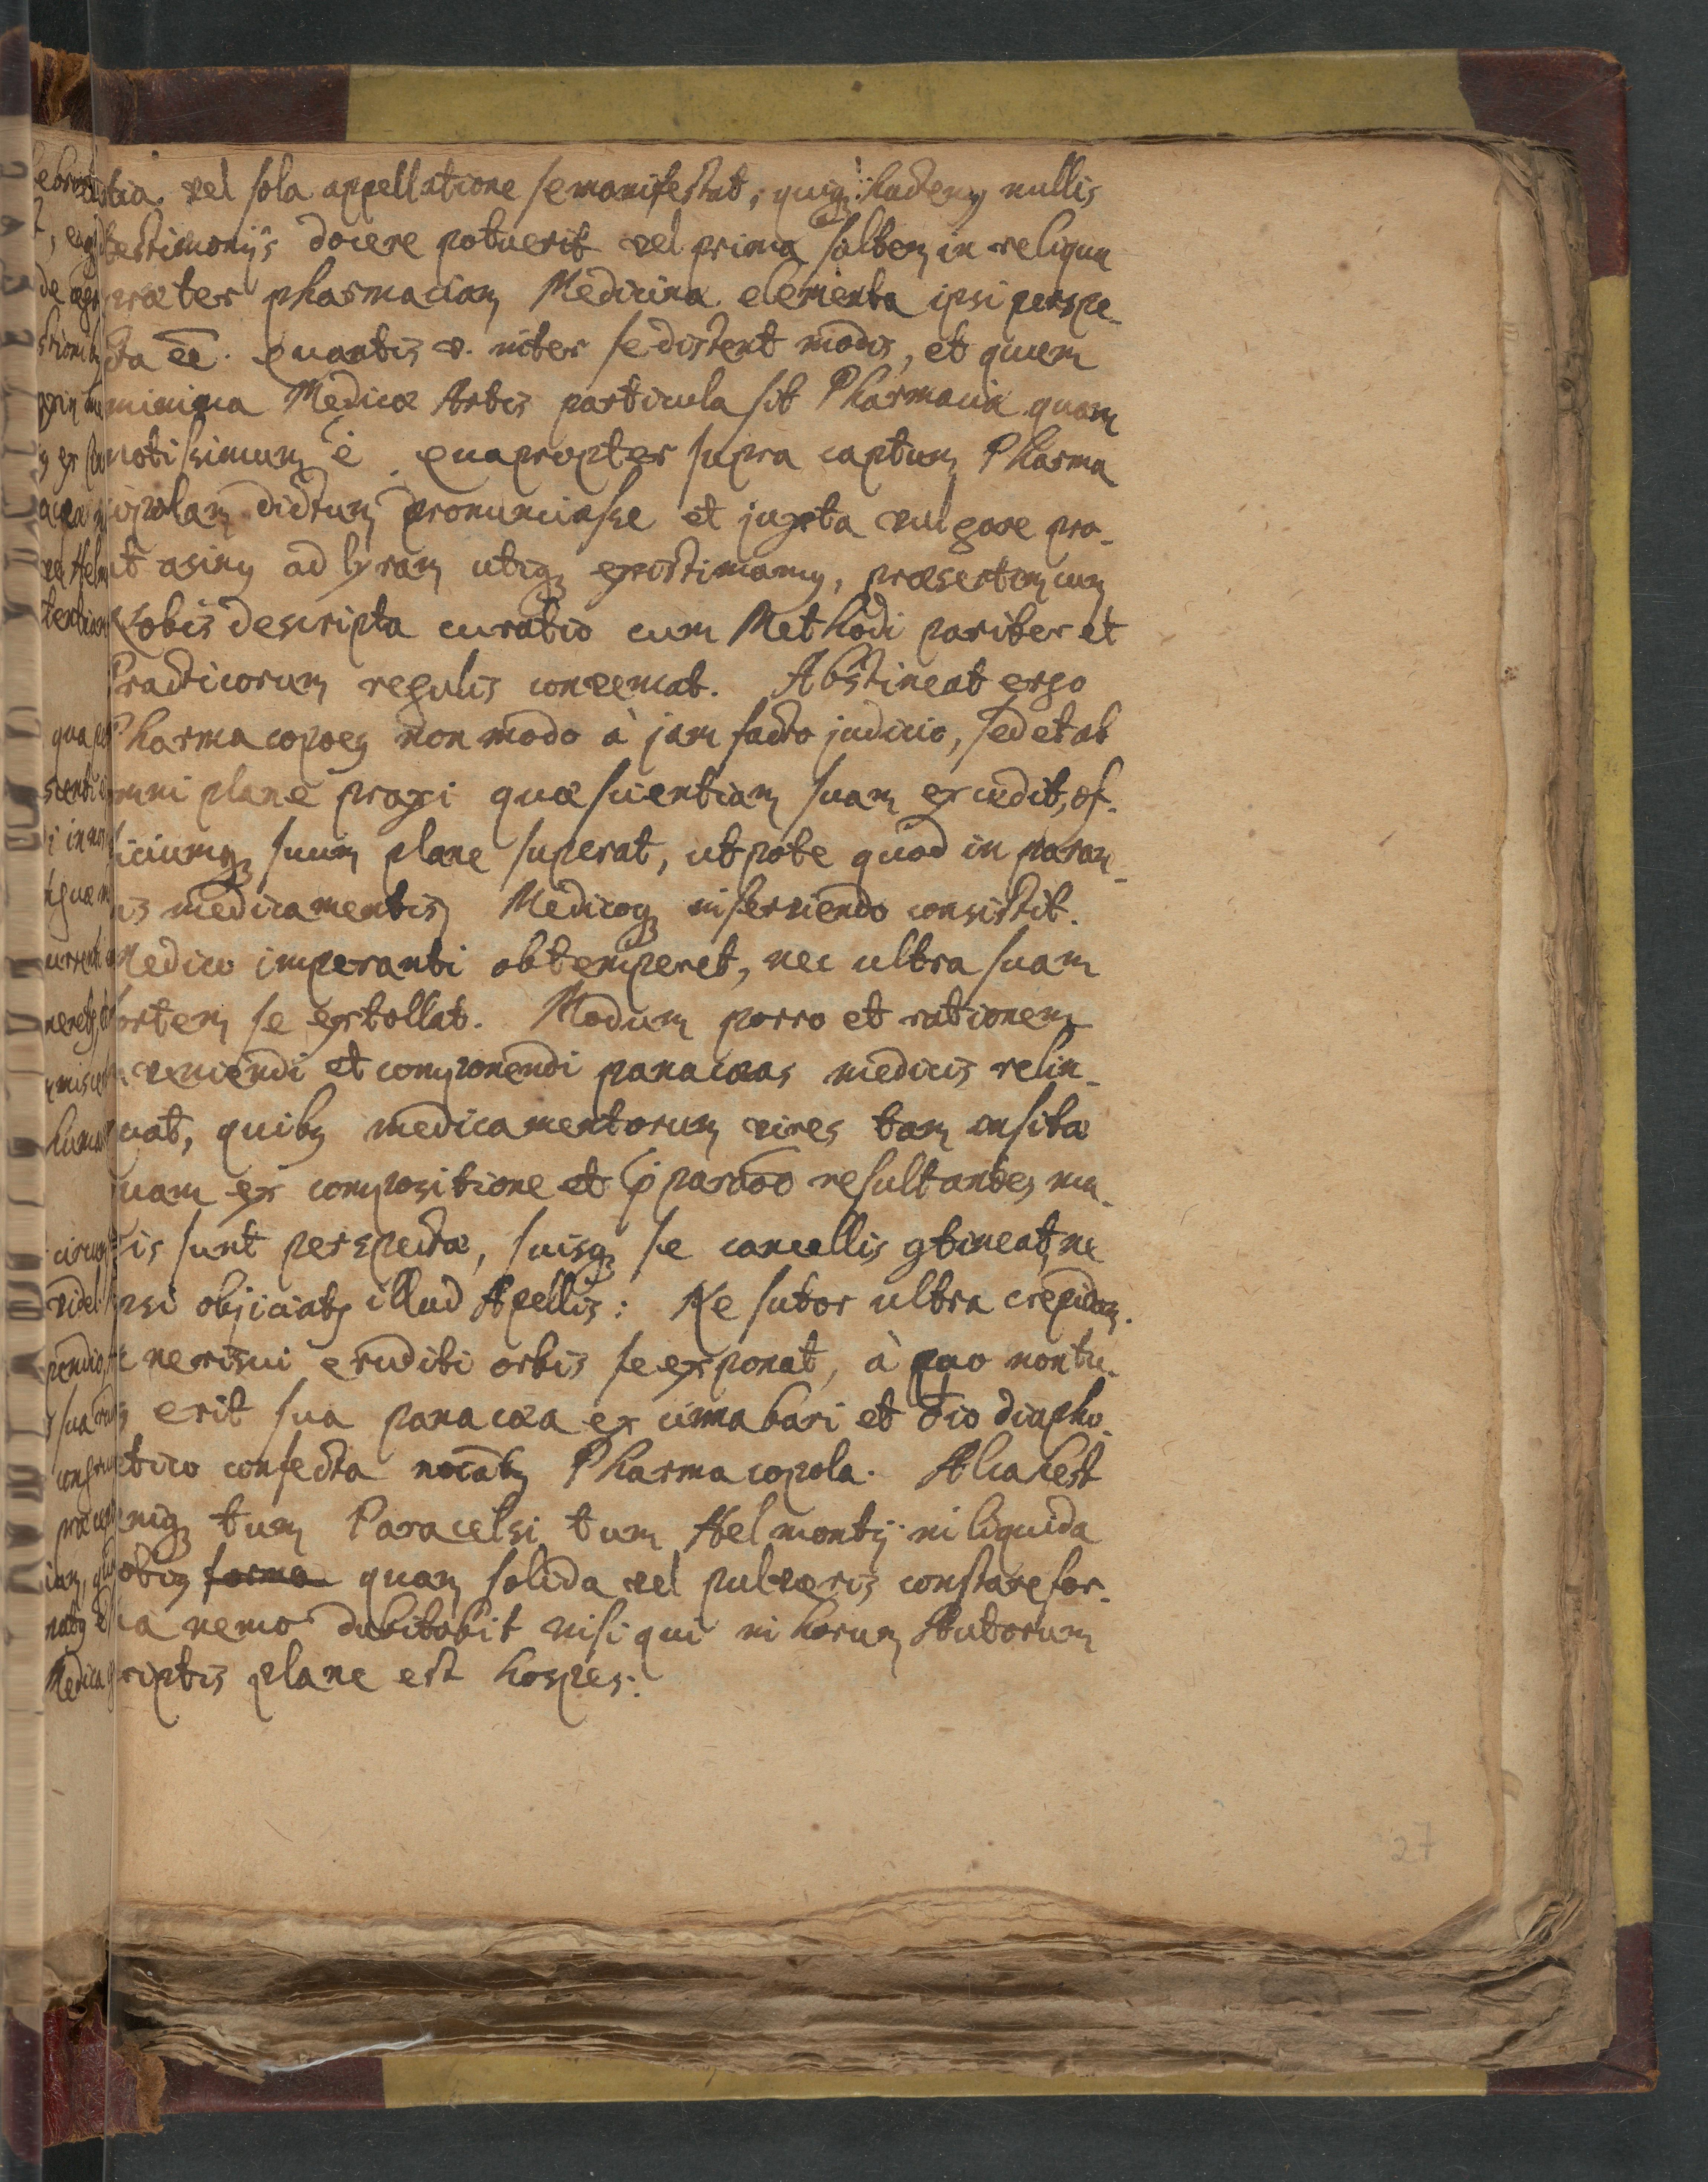 tia. vel sola appellatione se manifestat, quiq; hactenꝰ nullis
testimonijs docere potuerit vel prima saltem in reliqua
præter pharmaciam Medicina elementa ipsi perspe-
cta eē. Quantis v. inter se distent modis, et quam
minima Medicæ Artis particula sit Pharmacia quam
notissimum ē. Quapropter supra captum Pharma
copolam dictum pronunciasse et juxta vulgare pro-
ut asinꝰ ad lyram utiq; existimamꝰ, præsertim cum
Nobis descripta curatio cum Methodi pariter et
Practicorum regulis conveniat. Abstineat ergo
Pharmacopoeꝰ non modo à jam facto judicio, sed et ab
omni plane praxi quæ scientiam suam excedit, of-
ficiumq; suum plane superat, utpote quod in paran-
is medicamentis, Medicoq; inserviendo consistit.
Medico imperanti obtemperet, nec ultra suam
sortem se extollat. Modum porro et rationem
veniendi et componendi panacæas medicis relin-
quat, quibꝰ medicamentorum vires tam insitæ
quam ex compositione et resultantes ma-
is sunt perspectæ, suisq; se cancellis ꝯtineat, ne
ipsi objiciatꝰ illud Apellis: Ne sutor ultra crepidam.
ne risui eruditi orbis se exponat, à quo non tu-
erit sua panacæa ex cinnabari et ♁io diapho-
etico confecta Pharmacopola. Alcahest
eniq; tum Paracelsi tum Helmontij in liquida
forma quam solida vel pulveris constare for-
a nemo dubitabit nisi qui in horum Autorum
riptis plane est hospes.
27